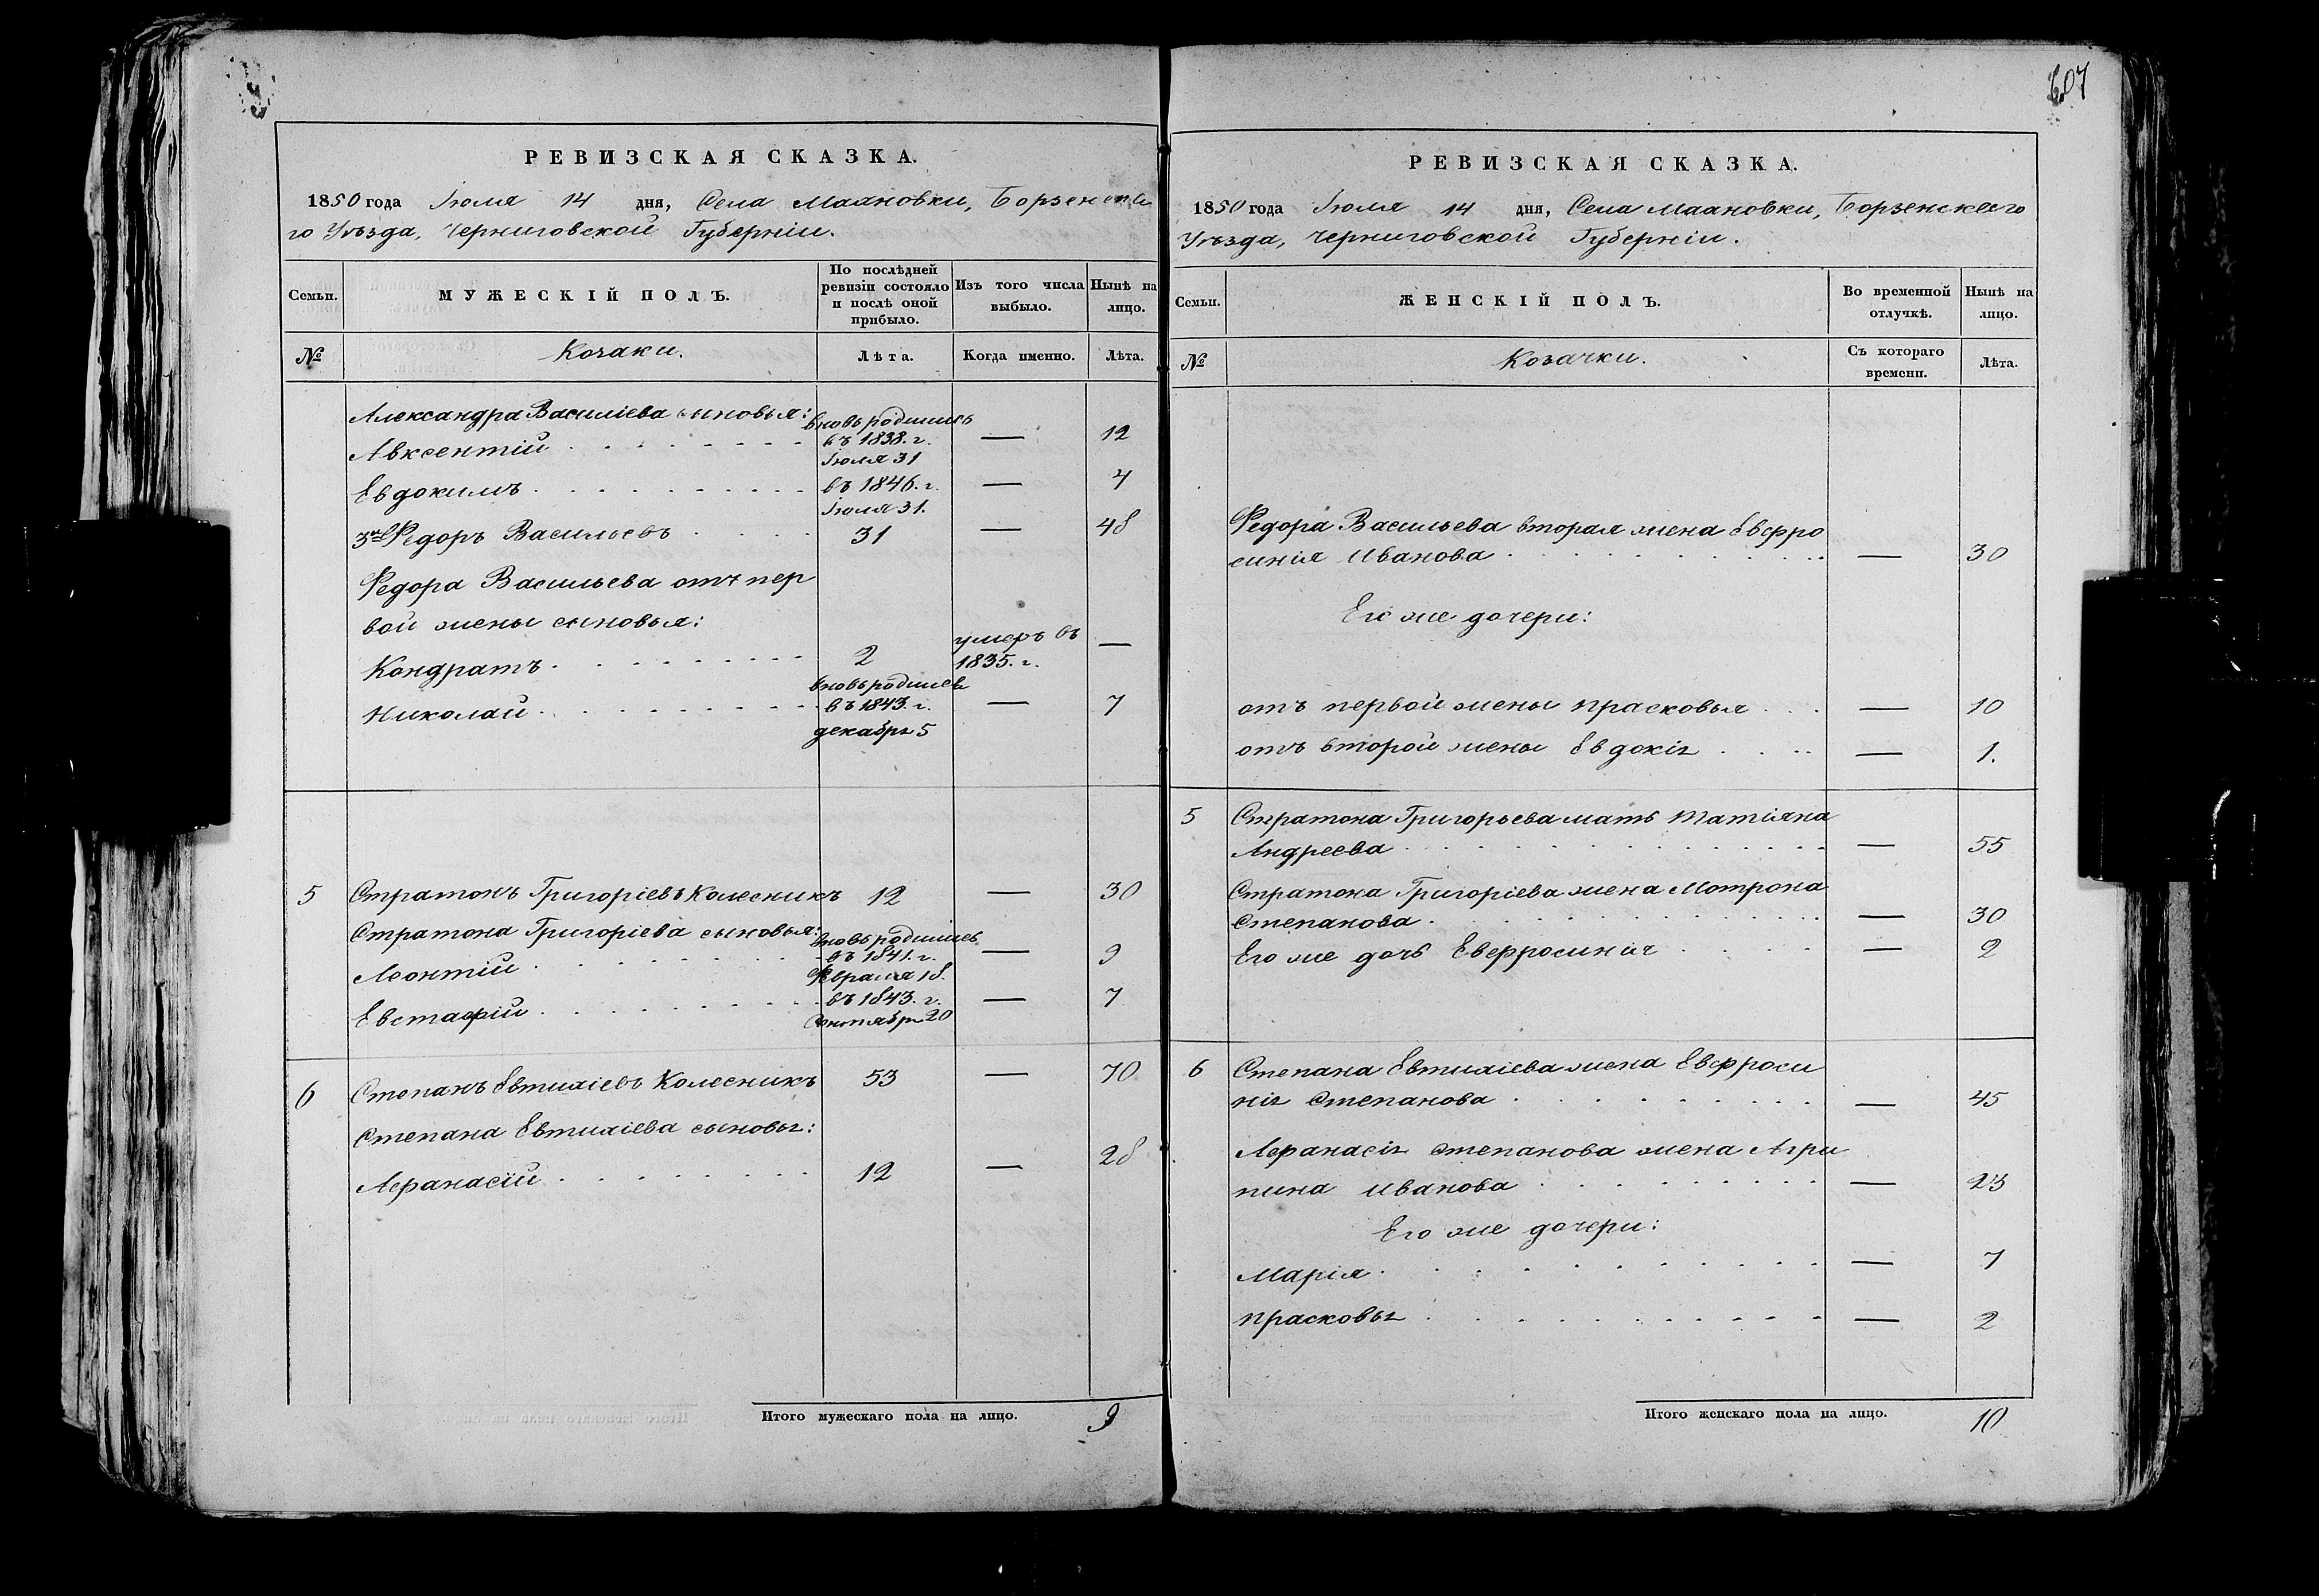 607
РЕВИЗСКАЯ СКАЗКА.
1850 года Іюля 14 дня, Села Маановки, Борзенска
го Уѣзда, Черниговской Губерніи.
Семьи.
МУЖЕСКІЙ ПОЛЪ.
По послѣдней ревизіи состояло и послѣ оной прибыло.
Изъ того числа выбыло.
Нынѣ на лицо.
№
Козаки.
Лѣта.
Когда именно.
Лѣта.
Александра Василіева сыновья: вновь родились
Авксентій въ 1838. г. — 12
Іюля 31
Евдокимъ въ 1846. г. — 4
Іюля 31.
3й Федоръ Васильевъ 31 — 48
Федора Васильева отъ пер
вой жены сыновья:
Кондратъ 2 умеръ въ 1835. г. —
вновь родился
Николай въ 1843. г. — 7
декабря 5
5 Стратонъ Григоріевъ Колесникъ 12 — 30
Стратона Григоріева сыновья: вновь родились
Леонтій въ 1841. г. — 9
Февраля 18.
Евстафій въ 1843. г. — 7
Сентября 20
6 Степанъ Евтихіевъ Колесникъ 53 — 70
Степана Евтихіева сыновья:
Афанасій 12 — 28
Итого мужескаго пола на лицо. 9
РЕВИЗСКАЯ СКАЗКА.
1850 года Іюля 14 дня, Села Маановки, Борзенскаго
Уѣзда, Черниговской Губерніи.
Семьи.
ЖЕНСКІЙ ПОЛЪ.
Во временной отлучкѣ.
Нынѣ на лицо.
№
Козачки.
Съ котораго времени.
Лѣта.
Федора Васильева вторая жена Евфро
синія Иванова — 30
Его же дочери:
отъ первой жены Прасковья — 10
отъ второй жены Евдокія — 1.
5 Стратона Григорьева мать Татіяна
Андреева — 55
Стратона Григоріева жена Мотрона
Степанова — 30
Его же дочь Евфросинія — 2
6 Степана Евтихіева жена Евфроси
нія Степанова — 45
Афанасія Степанова жена Агри
пина Иванова — 23
Его же дочери:
Марія — 7
Прасковья — 2
Итого женскаго пола на лицо. 10